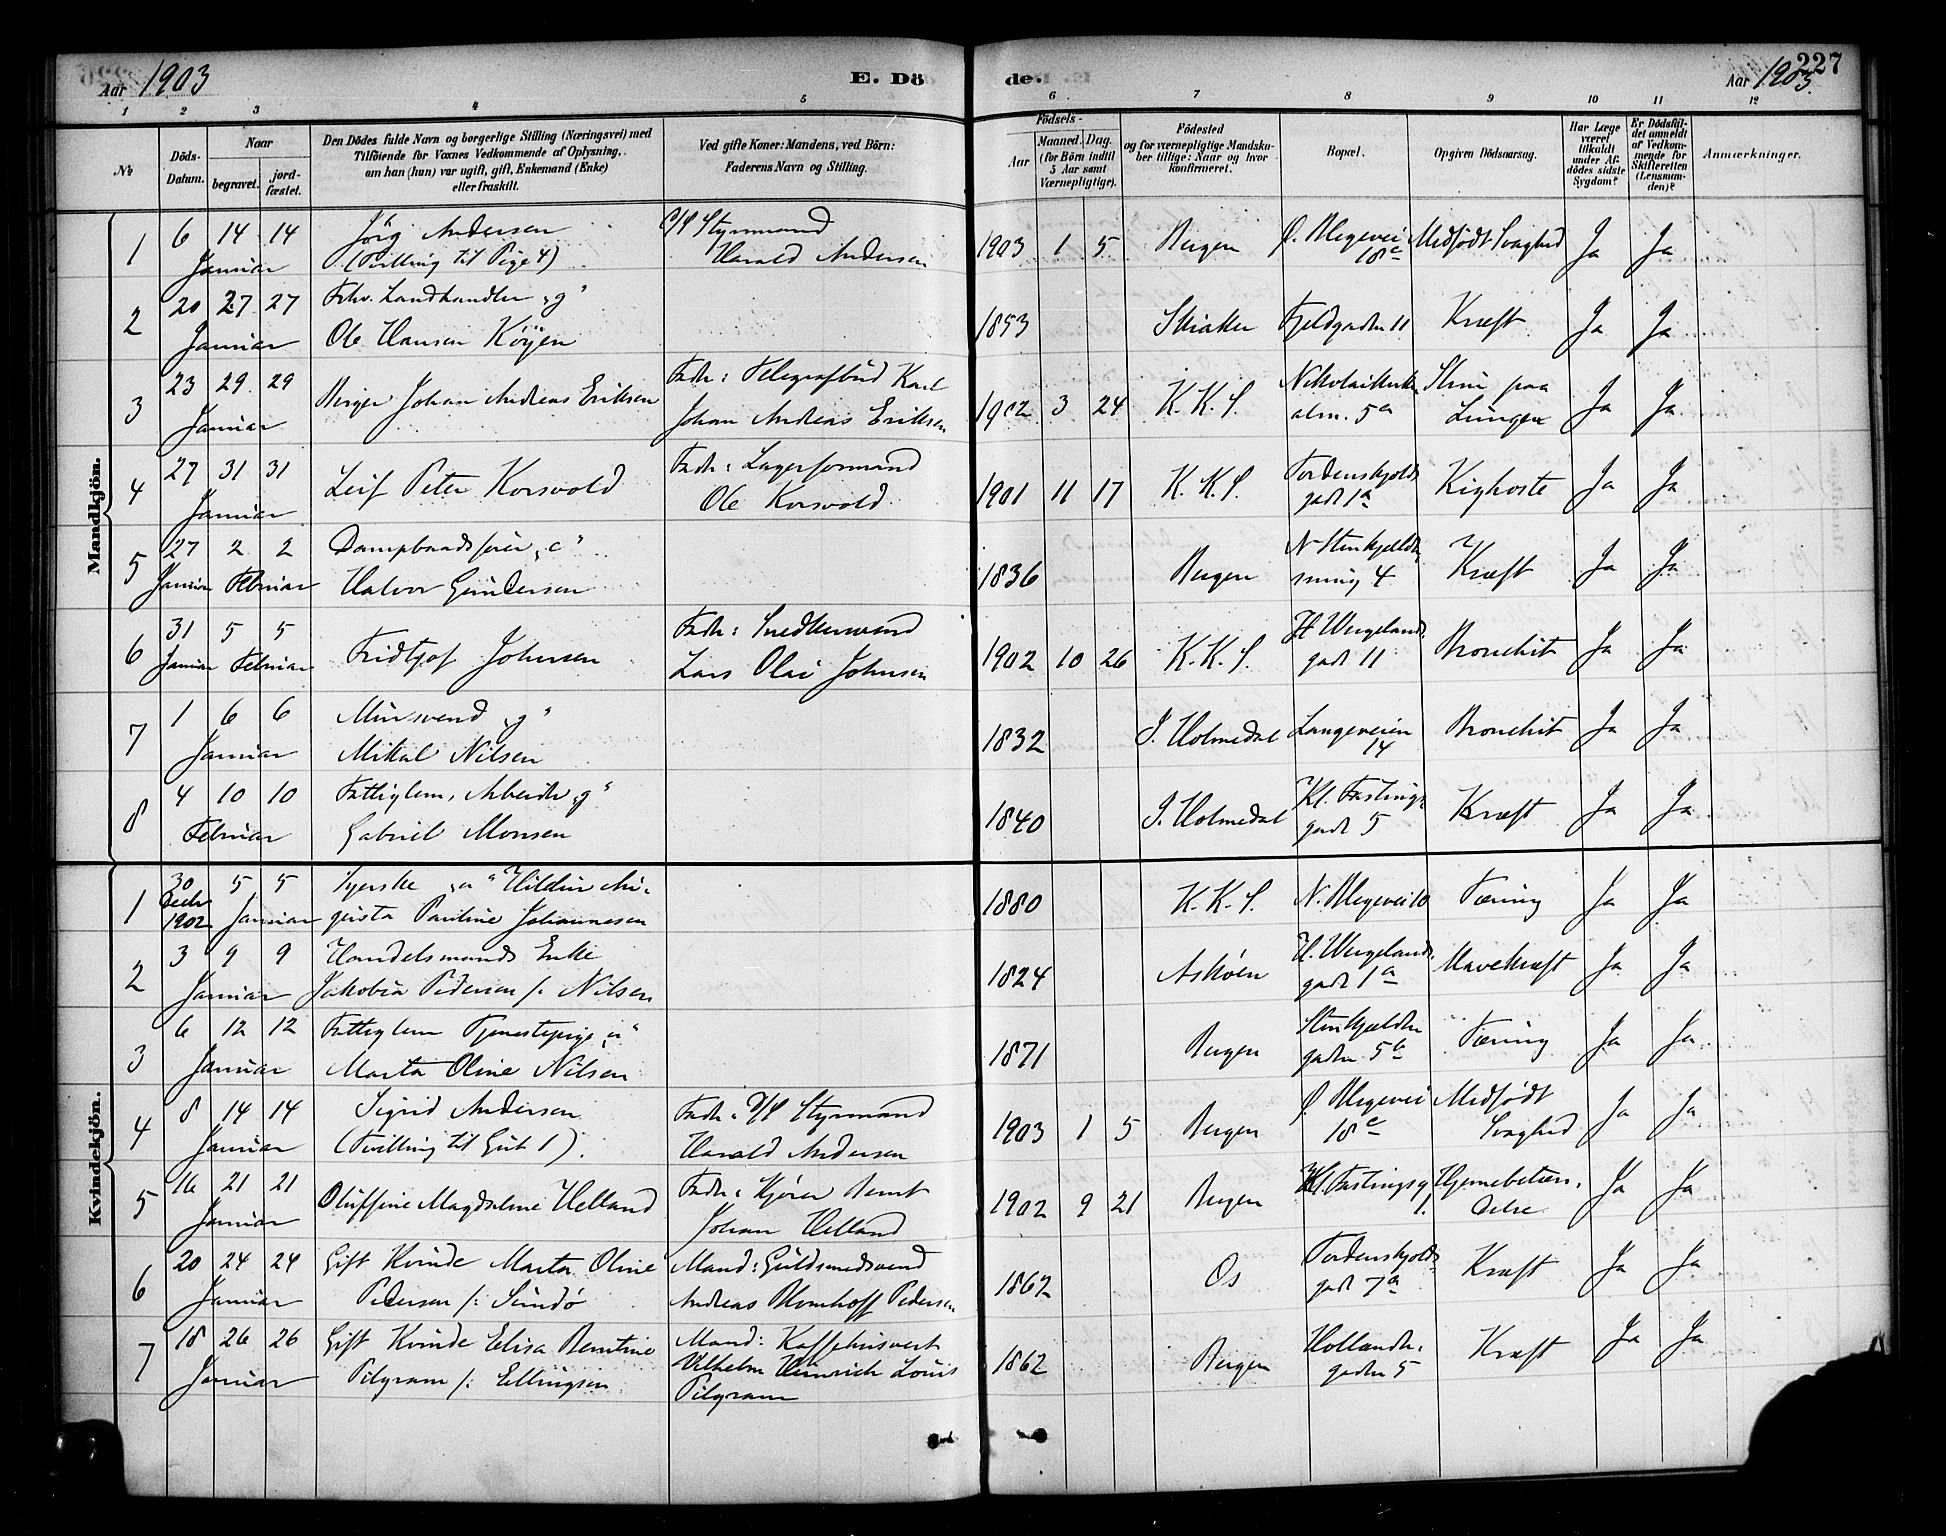 Aar 1903
E. Döde.
Aar 1903.
227
1 2 3 4 5 6 7 8 9 10 11 12
No
Döds-Datum.
Naar
begravet.
jordfæstet.
Den Dödes fulde Navn og borgerlige Stilling (Næringsvei) med
Tilföiende for Voxnes Vedkommende af Oplysning,
om han (hun) var ugift, gift, Enkemand (Enke)
eller fraskilt.
Ved gifte Koner: Mandens, ved Börn:
Faderens Navn og Stilling.
Födsels-
Aar
Maaned. Dag.
(for Börn indtil
5 Aar samt
Værnepligtige).
Födested
og for værnepligtige Mandskaber tillige: Naar og hvor
konfirmeret.
Bopæl.
Opgiven Dödsaarsag.
Har Læge
været
tilkaldt
under Afdödes sidste
Sygdom?
Er Dödsfaldet anmeldt
af Vedkommende for
Skifteretten
(Lensmanden)?
Anmærkninger.
Mandkjön.
1 6 14 14 Jörg Andersen D/S Styrmand 1903 1 5 Bergen Ø. Blegevei Medfödt Svaghed Ja Ja
Januar (Tvilling til Pige 4) Harald Andersen 18c
2 20 27 27 Fhv. Landhandler „g“ 1853 Skiaker Fjeldgaden 11 Kræft Ja Ja
Januar Ole Hansen Köyen
3 23 29 29 Birger Johan Andreas Eriksen Fader: Telegrafbud Karl 1902 3 24 K. K. S. Nikolaikirke Slim paa Ja Ja
Januar Johan Andreas Eriksen alm. 5a Lungen
4 27 31 31 Leif Peter Korsvold Fader: Lagerformand 1901 11 17 K. K. S. Tordenskjolds Kighoste Ja Ja
Januar Ole Korsvold gade 1a
5 27 2 2 Dampbaadsfører „e“ 1836 Bergen N Stenkjelder Kræft Ja Ja
Januar Februar Halvor Gundersen smug 4
6 31 5 5 Fridtjof Johnsen Fader: Snedkersvend 1902 10 26 K. K. S. H Wergelands Bronchit Ja Ja
Januar Februar Lars Olai Johnsen gade 11
7 1 6 6 Mursvend „g“ 1832 I. Holmedal Langeveien Bronchit Ja Ja
Januar Mikal Nilsen 14
8 4 10 10 Fattiglem, Arbeider „g“ 1840 I. Holmedal Kl. Fastings Kræft Ja Ja
Februar Gabriel Monsen gade 5
Kvindekjön.
1 30 5 5 Syerske „u“ Hildur Au- 1880 K. K. S. N. Blegevei 10 Tæring Ja Ja
Decbr 1902 Januar gusta Pauline Johannesen
2 3 9 9 Handelsmands Enke 1824 Askøen H. Wergelands Mavekræft Ja Ja
Januar Jakobia Pedersen f: Nilsen gade 1a
3 6 12 12 Fattiglem Tjenestepige „u“ 1871 Bergen Stenkjelder Tæring Ja Ja
Januar Marta Oline Nilsen gaden 5b
4 8 14 14 Sigrid Andersen Fader: D/S Styrmand 1903 1 5 Bergen Ø. Blegevei Medfödt Ja Ja
Januar (Tvilling til Gut 1). Harald Andersen 18c Svaghed
5 16 21 21 Oluffine Magdalene Helland Fader: Kjører Bernt 1902 9 21 Bergen Kl. Fastingsg Hjernebetæn- Ja Ja
Januar Johan Helland 1. delse
6 20 24 24 Gift Kvinde Marta Oline Mand: Guldsmedsvend 1862 Os Tordenskjolds Kræft Ja Ja
Januar Pedersen f: Sundö Andreas Blomhoff Pedersen gade 7a
7 18 26 26 Gift Kvinde Elisa Berntine Mand: Kaffehusvert 1862 Bergen Hollænder- Kræft Ja Ja
Januar Pilgram f: Ellingsen Vilhelm Heinrich Louis gaden 5
Pilgram